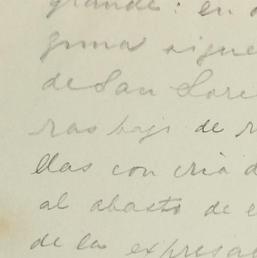 grande: en
guna sigue
de San Lore
ras bajo de
llas con cria d
al abasto de e
de las expresa